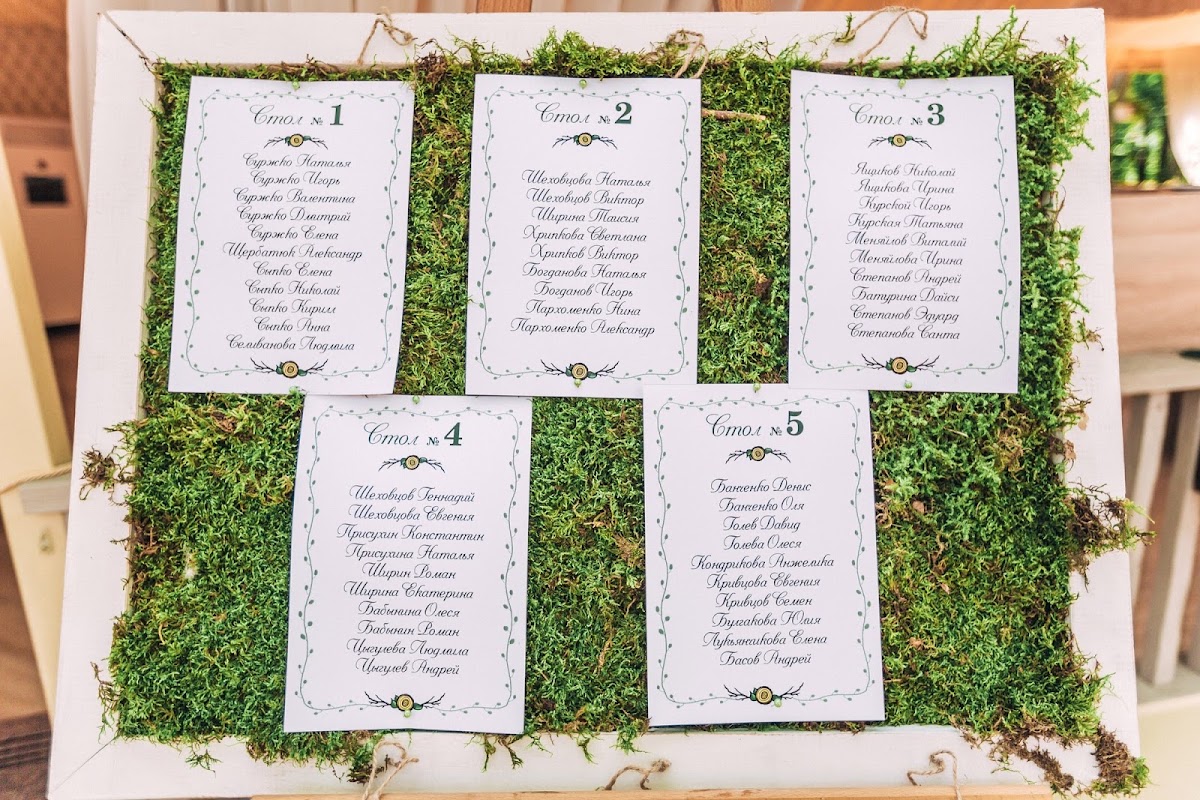 Стол № 1
Суржко Наталья
Суржко Игорь
Суржко Валентина
Суржко Дмитрий
Суржко Елена
Щербатюк Александр
Сыпко Елена
Сыпко Николай
Сыпко Кирилл
Сыпко Анна
Селиванова Людмила
Стол № 2
Шеховцова Наталья
Шеховцов Виктор
Ширина Таисия
Хрипкова Светлана
Хрипков Виктор
Богданова Наталья
Богданов Игорь
Пархоменко Нина
Пархоменко Александр
Стол № 3
Ящиков Николай
Ящикова Ирина
Курской Игорь
Курская Татьяна
Меняйлов Виталий
Меняйлова Ирина
Степанов Андрей
Батурина Дайси
Степанов Эдуард
Степанова Санта
Стол № 4
Шеховцов Геннадий
Шеховцова Евгения
Присухин Константин
Присухина Наталья
Ширин Роман
Ширина Екатерина
Бабынина Олеся
Бабынин Роман
Цыгулева Людмила
Цыгулев Андрей
Стол № 5
Банченко Денис
Банченко Оля
Голев Давид
Голева Олеся
Кондрикова Анжелика
Кривцова Евгения
Кривцов Семен
Булгакова Юлия
Лукьянчикова Елена
Басов Андрей